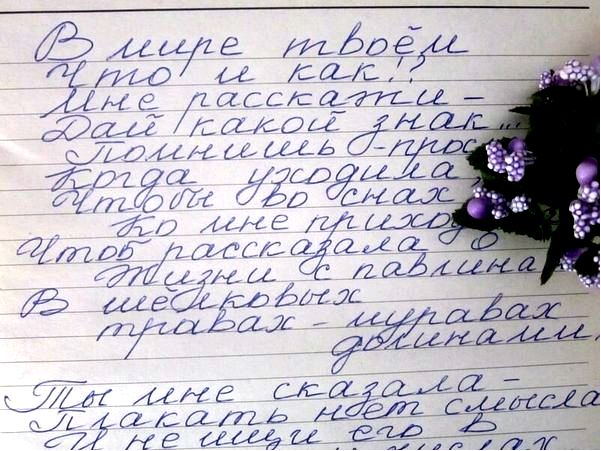 В мире твоём
Что и как!?
Мне расскажи -
Дай какой знак...
Помнишь - прос
Когда уходила,
Чтобы во снах
Ко мне приходо
Чтоб рассказала о
Жизни с павлина
В шёлковых
травах - муравах
долинами.
Ты мне сказала -
Плакать нет смысла
И не ищи его в